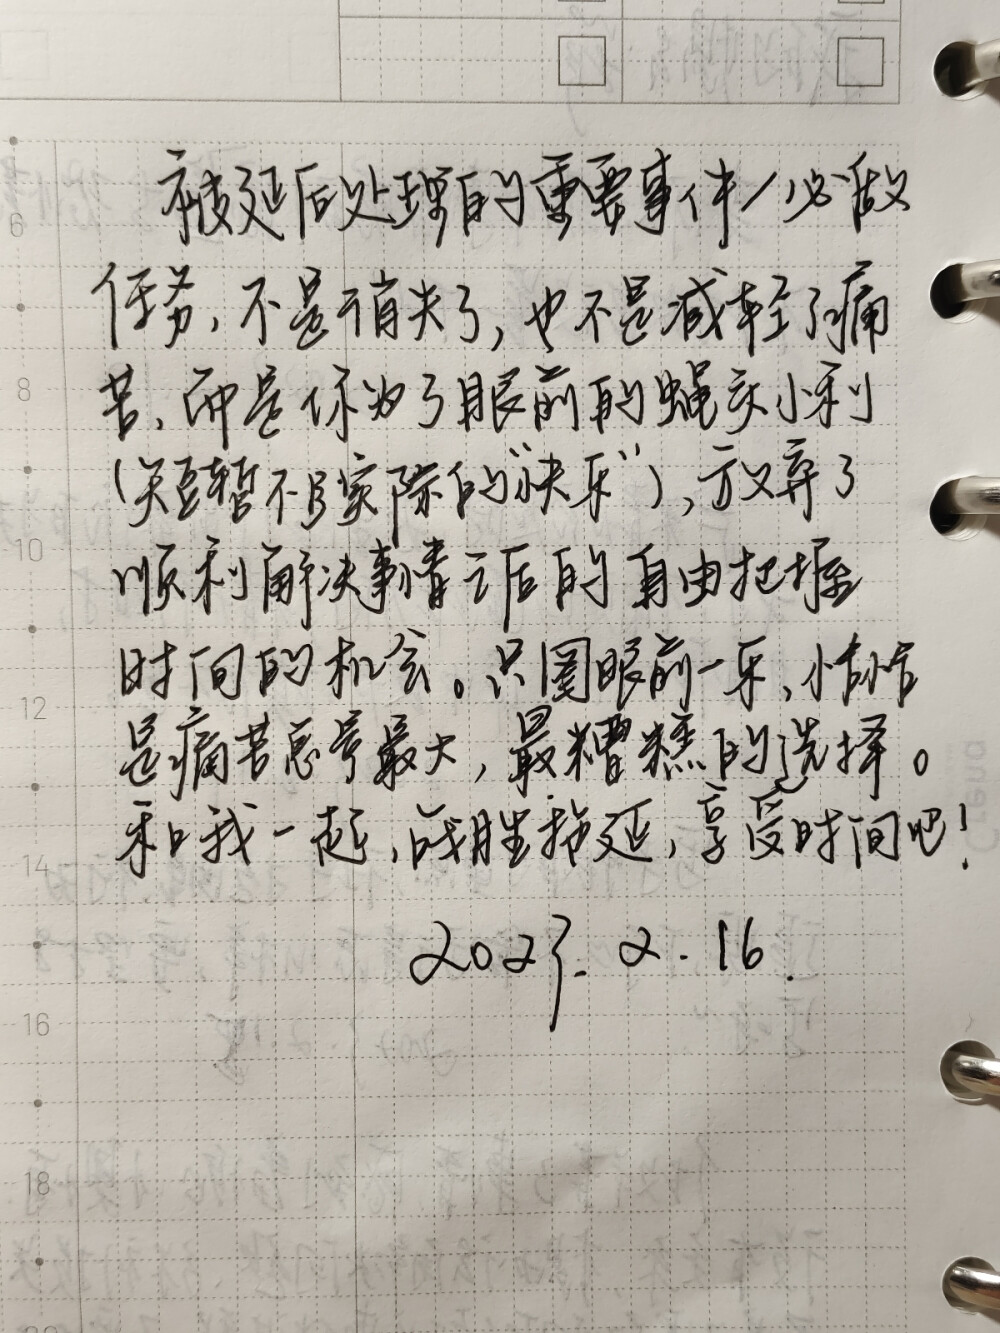 6
被延后处理的重要事件/必做
任务,不是消失了,也不是减轻了痛
8
苦,而是你为了眼前的蝇头小利
(短暂不实际的"快乐"),放弃了
10
顺利解决事情之后的自由把握
时间的机会。只图眼前一乐,恰恰
12
是痛苦总量最大,最糟糕的选择。
和我一起,战胜拖延,享受时间吧!
14
2023.2.16.
16
18
20